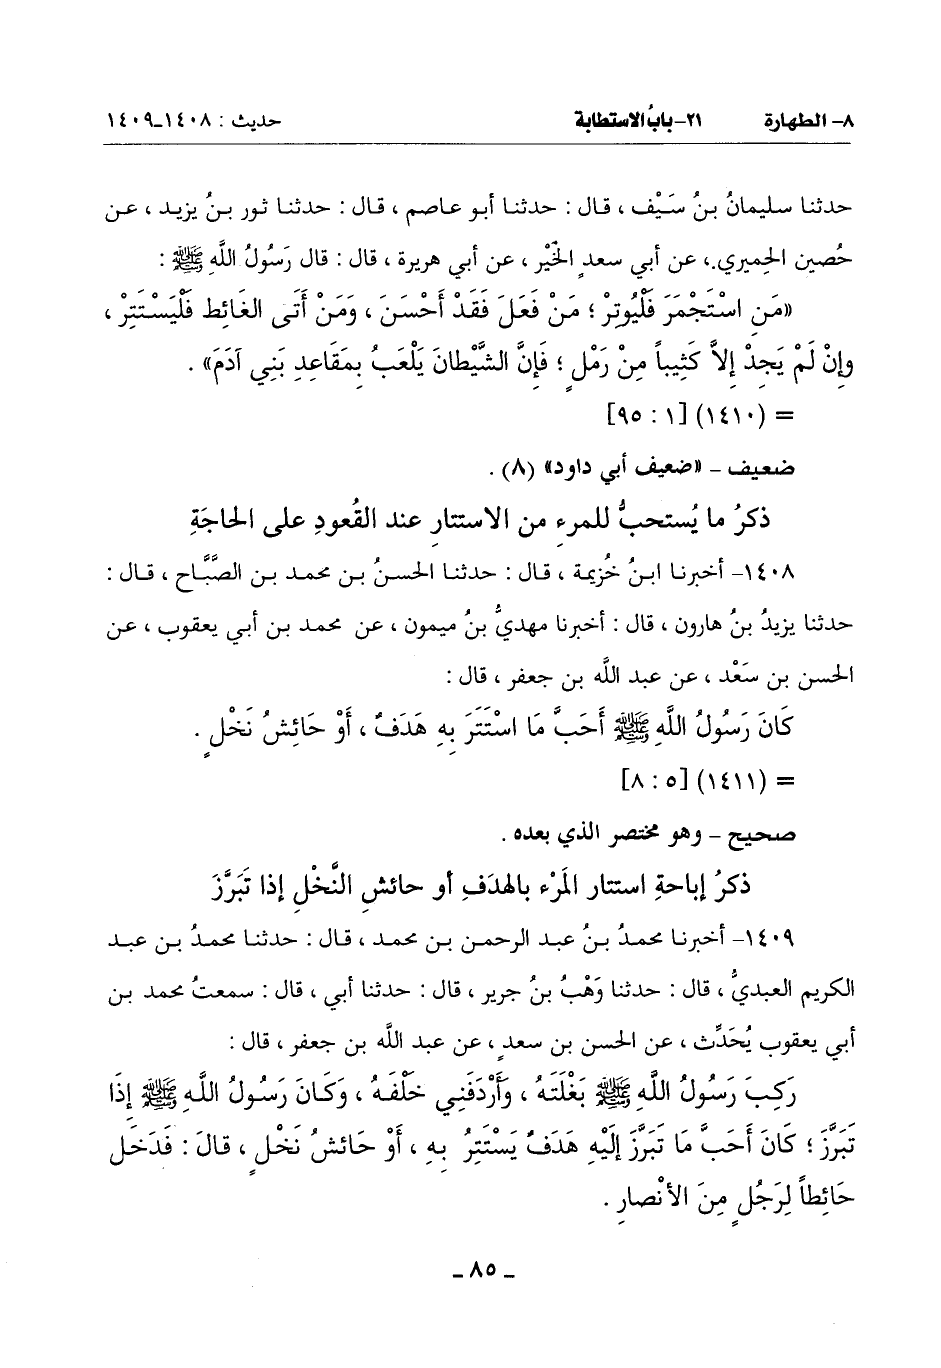 ٨- الطهارة ٢١-بابُ الاستطابة حديث : ١٤٠٨-١٤٠٩
حدثنا سليمانُ بنُ سَيْف ، قال : حدثنا أبو عاصم ، قال : حدثنا ثور بنُ يزيد ، عن
حُصين الحِميري، عن أبي سعدٍ الخَيْر ، عن أبي هريرة ، قال : قال رَسُولُ اللَّهِ ﷺ :
«مَنِ اسْتَجْمَرَ فَلْيُوتِرْ ؛ مَنْ فَعَلَ فَقَدْ أَحْسَنَ ، وَمَنْ أَتَى الغَائِط فَلْيَسْتَتِرْ ،
وإِنْ لَمْ يَجِدْ إِلاَّ كَثِيباً مِنْ رَمْلٍ ؛ فَإِنَّ الشَّيْطانَ يَلْعَبُ بِمَقَاعِدِ بَنِي آدَمَ» .
= (١٤١٠) [١ : ٩٥]
ضعيف - «ضعيف أبي داود» (٨) .
ذكرُ ما يُستحبُّ للمرءِ من الاستتارِ عند القُعودِ على الحاجَةِ
١٤٠٨- أخبرنا ابنُ خُزيمة ، قال : حدثنا الحسنُ بن محمد بن الصَّبَّاح ، قال :
حدثنا يزيدُ بنُ هارون ، قال : أخبرنا مهديُّ بنُ ميمون ، عن محمد بن أبي يعقوب ، عن
الحسن بن سَعْد ، عن عبد اللَّه بن جعفر ، قال :
كَانَ رَسُولُ اللَّهِ ﷺ أَحَبَّ مَا اسْتَتَرَ بِهِ هَدَفٌ ، أَوْ حَائِشُ نَخْلٍ .
= (١٤١١) [٥ : ٨]
صحيح - وهو مختصر الذي بعده .
ذكرُ إباحةِ استتار المَرْء بالهدَفِ أو حائشِ النَّخْلِ إذا تَبَرَّزَ
١٤٠٩- أخبرنا محمدُ بنُ عبد الرحمن بن محمد ، قال : حدثنا محمدُ بن عبد
الكريم العبديُّ ، قال : حدثنا وَهْبُ بنُ جرير ، قال : حدثنا أبي ، قال : سمعتُ محمد بن
أبي يعقوب يُحَدِّث ، عن الحسن بن سعدٍ ، عن عبد اللَّه بن جعفر ، قال :
رَكِبَ رَسُولُ اللَّهِ ﷺ بَغْلَتَهُ ، وَأَرْدَفَنِي خَلْفَهُ ، وَكَانَ رَسُولُ اللَّهِ ﷺ إِذَا
تَبَرَّزَ ؛ كَانَ أَحَبَّ مَا تَبَرَّزَ إِلَيْهِ هَدَفٌ يَسْتَتِرُ بِهِ ، أَوْ حَائِشُ نَخْلٍ ، قالَ : فَدَخَلَ
حَائِطاً لِرَجُلٍ مِنَ الأَنْصارِ .
- ٨٥ -